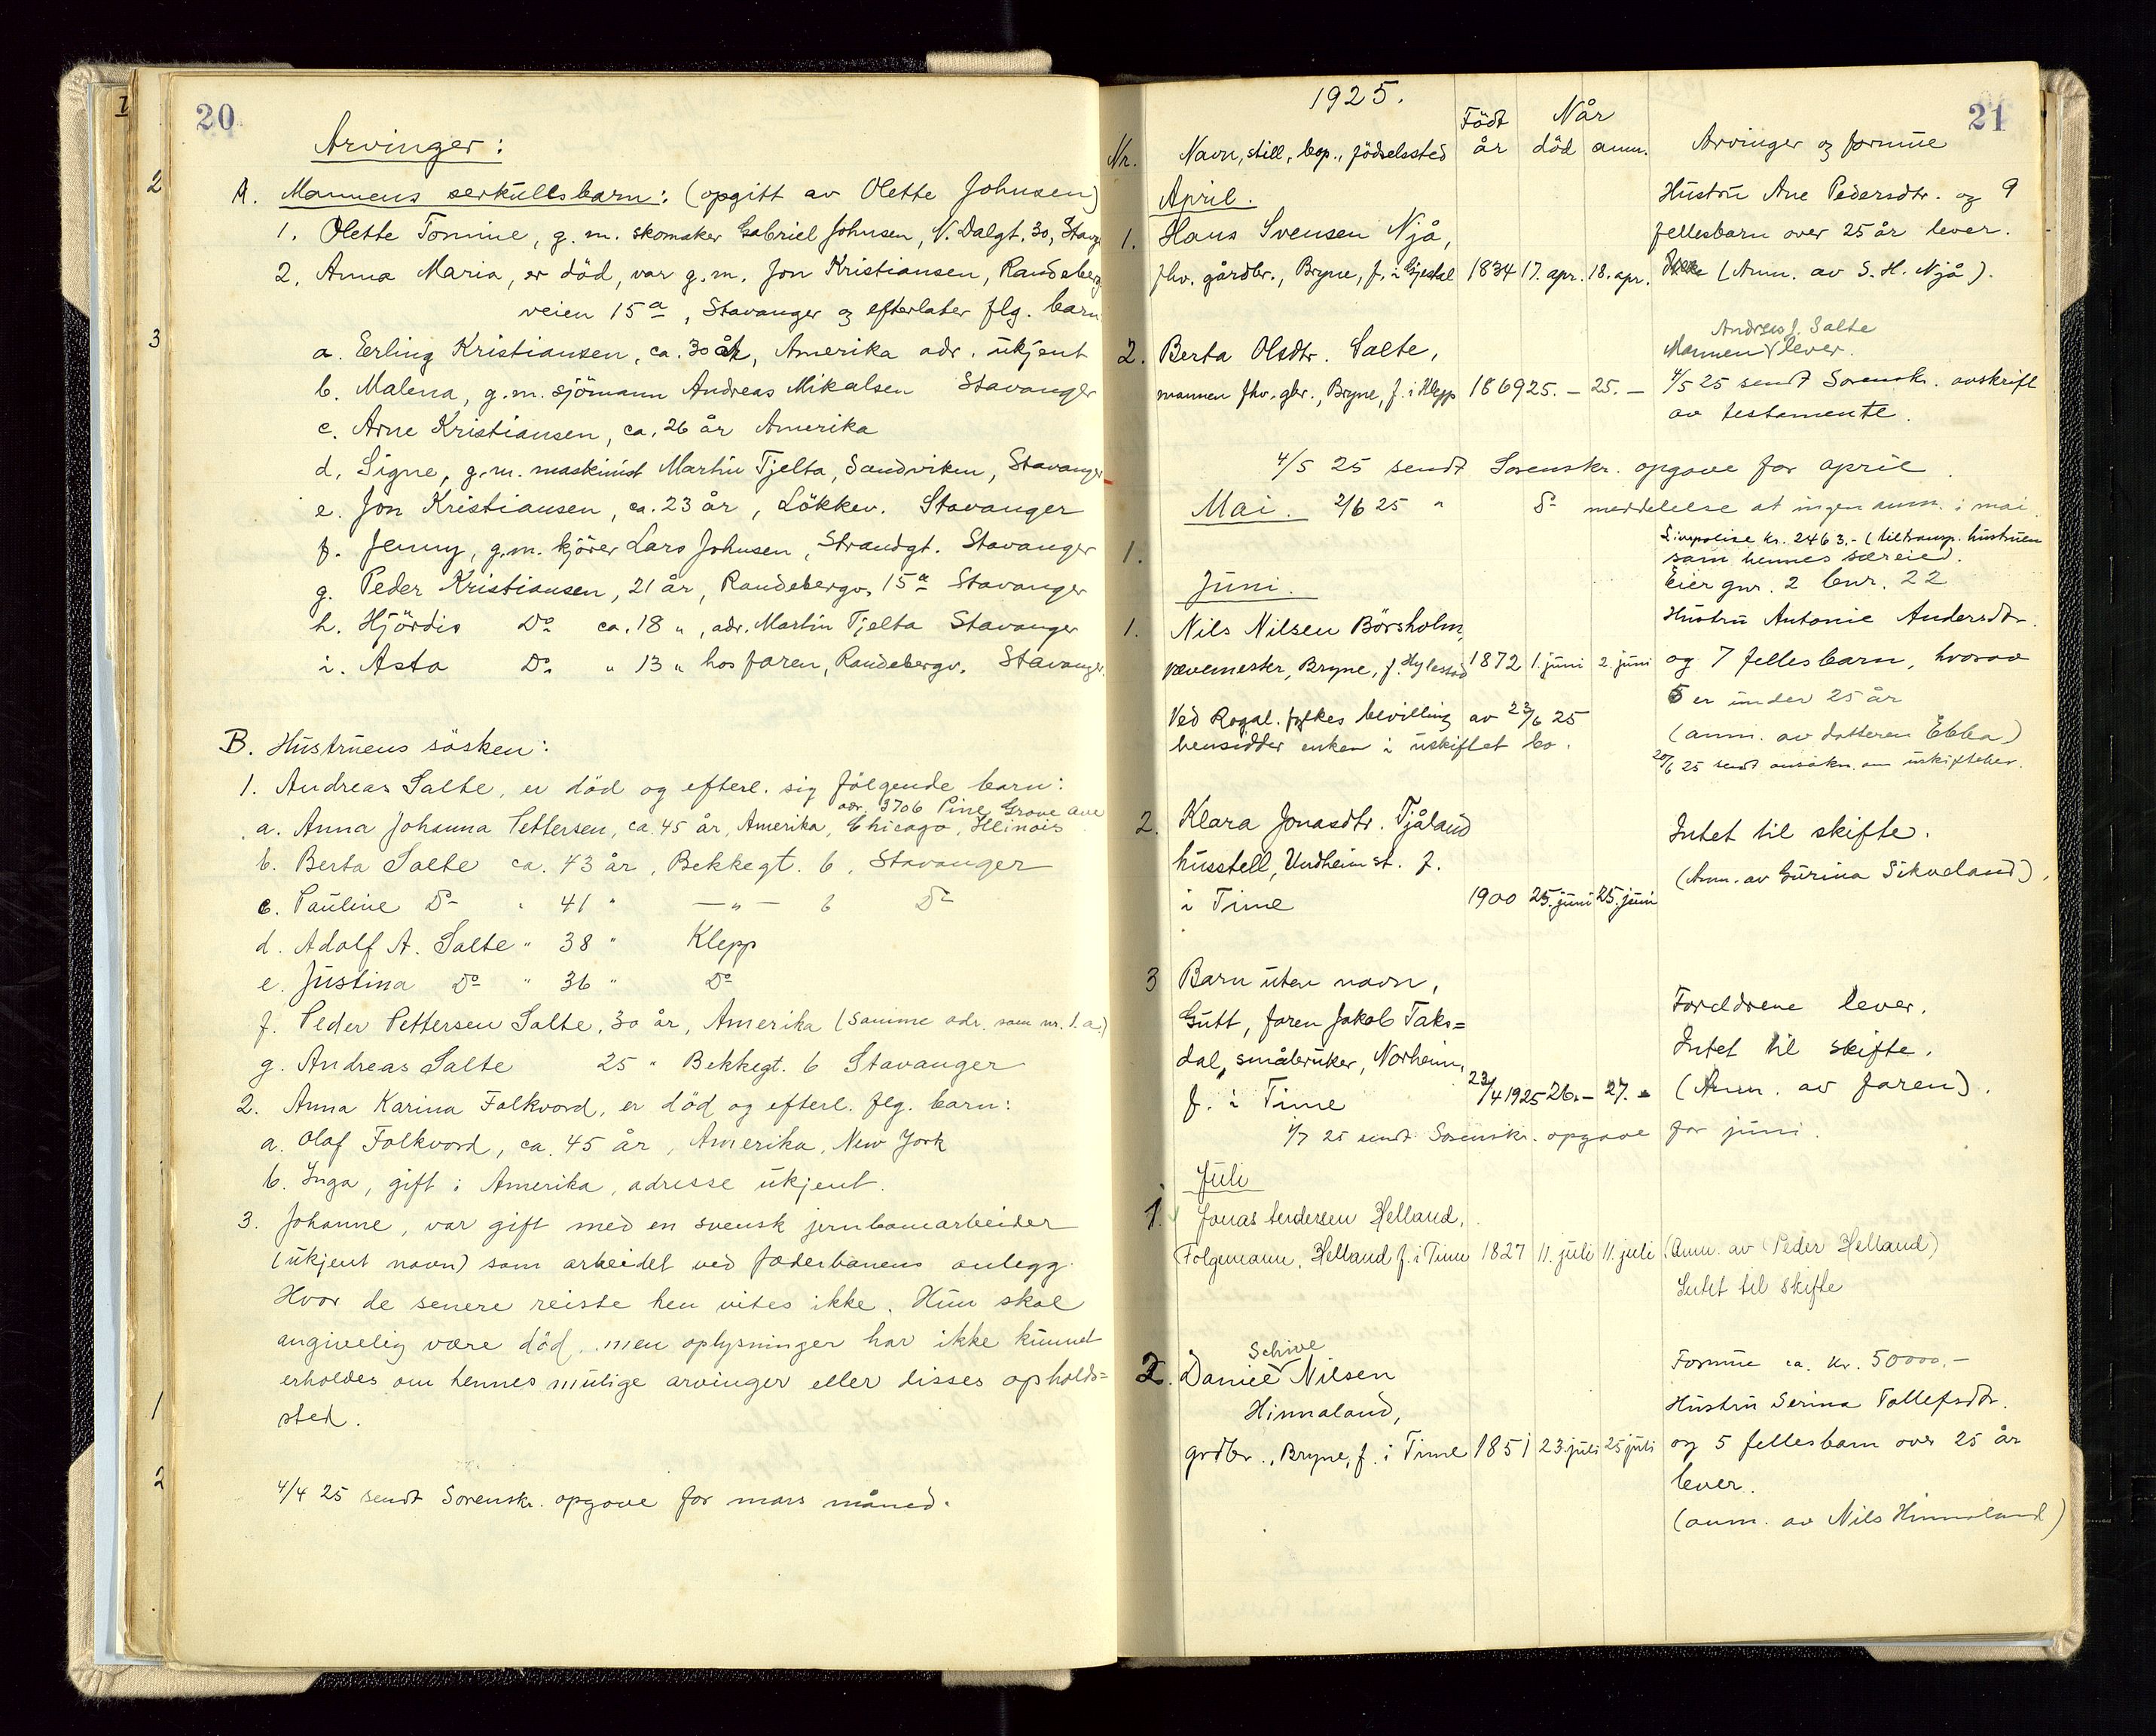 20
Arvinger:
A. Mannens særkullsbarn: (opgitt av Olette Johnsen)
1. Olette Tomine, g. m. skomaker Gabriel Johnsen, N. Dalgt. 30, Stavg
2. Anna Maria, er död, var g. m. Jon Kristiansen, Randeberg
veien 15a, Stavanger og efterlater flg. barn
a. Erling Kristiansen, ca. 30 år, Amerika adr. ukjent
b. Malena, g. m. sjömann Andreas Mikalsen Stavanger
c. Arne Kristiansen, ca. 26 år Amerika
d. Signe, g. m. maskinist Martin Tjelta, Sandviken, Stavanger
e. Jon Kristiansen, ca. 23 år, Lökkev. Stavanger
f. Jenny, g.m. kjörer Lars Johnsen, Strandgt. Stavanger
g. Peder Kristiansen, 21 år, Randebergv. 15a Stavanger
h. Hjördis Do ca. 18 " , adr. Martin Tjelta Stavanger
i. Asta Do " 13 " hos faren, Randebergv. Stavanger
B. Hustruens sösken:
1. Andreas Salte, er död og efterl. sig fölgende barn:
adr. 3706 Pine Grove ave
a. Anna Johanna Pettersen, ca. 45 år, Amerika, Chicago, Illinois
b. Berta Salte ca. 43 år, Bekkegt. 6, Stavanger
c. Pauline Do " 41 " — " — 6 Do
d. Adolf A. Salte " 38 " Klepp
e. Justina Do " 36 " Do
f. Peder Pettersen Salte, 30 år, Amerika (samme adr. som nr. 1.a.)
g. Andreas Salte 25 " Bekkegt. 6 Stavanger
2. Anna Karina Folkvord, er död og efterl. flg. barn:
a. Olaf Folkvord, ca. 45 år, Amerika, New York
b. Inga, gift i Amerika, adresse ukjent.
3. Johanne, var gift med en svensk jernbanearbeider
(ukjent navn) som arbeidet ved Jæderbanens anlegg.
Hvor de senere reiste hen vites ikke. Hun skal
angivelig være död, men oplysninger har ikke kunnet
erholdes om hennes mulige arvinger eller disses opholds=
sted.
4/4 25 sendt Sorenskr. opgave for mars måned.
21
1925.
Nr. Navn, still, bop., födselssted Födt år Når död anm. Arvinger og formue
April.
Hustru Ane Pedersdtr. og 9
1. Hans Svensen Njå, fellesbarn over 25 år lever.
fhv. gårdbr., Bryne, f. i Gjestal 1834 17. apr. 18. apr. (Anm. av S. H. Njå).
Andreas J. Salte
2. Berta Olsdtr. Salte, Mannen lever.
mannen fhv. gbr., Bryne, f. i Klepp 1869 25. — 25. — 4/5 25 sendt Sorenskr. avskrift
av testamente.
4/5 25 sendt Sorenskr. opgave for april.
Mai. 2/6 25 " Do meddelelse at ingen anm. i mai.
1. Livspolise kr. 2463.- (tiltransp. hustruen
som hennes særeie).
Juni. Eier gnr. 2 bnr. 22
1. Nils Nilsen Börsholm, Hustru Antonie Andersdtr.
vevemester, Bryne, f. Hylestad 1872 1. juni 2. juni og 7 fellesbarn, hvorav
5 er under 25 år
Ved Rogal. fylkes bevilling av 23/6 25
(anm. av datteren Ebba)
hensidder enken i uskiftet bo.
20/6 25 sendt ansökn. om uskiftebev.
2. Klara Jonasdtr. Tjåland Intet til skifte.
husstell, Undheim st. f. (Anm. av Gurina Sikveland).
i Time 1900 25. juni 25. juni
3 Barn uten navn, Foreldrene lever.
Gutt, faren Jakob Taks= Intet til skifte.
dal, småbruker, Norheim,
f. i Time 23/4 1925 26. — 27. — (Anm. av faren).
1/7 25 sendt Sorenskr. opgave for juni.
Juli
1. Jonas Andersen Helland,
Folgemann, Helland f. i Time 1827 11. juli 11. juli (Anm. av Peder Helland)
Intet til skifte
Schive
2. Daniel Nilsen Formue ca. kr. 50000.-
Hinnaland, Hustru Serina Tollefsdtr.
grdbr., Bryne, f. i Time 1851 23. juli 25 juli og 5 fellesbarn over 25 år
lever.
(anm. av Nils Hinnaland)
2
3
1
2